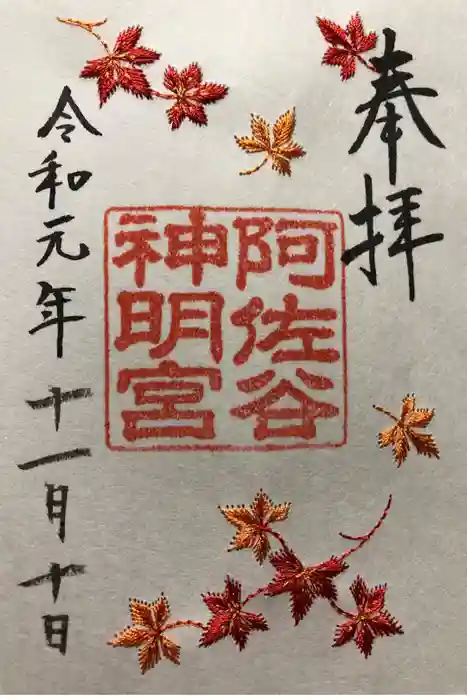 奉拝
阿佐谷
神明宮
令和元年十一月十日